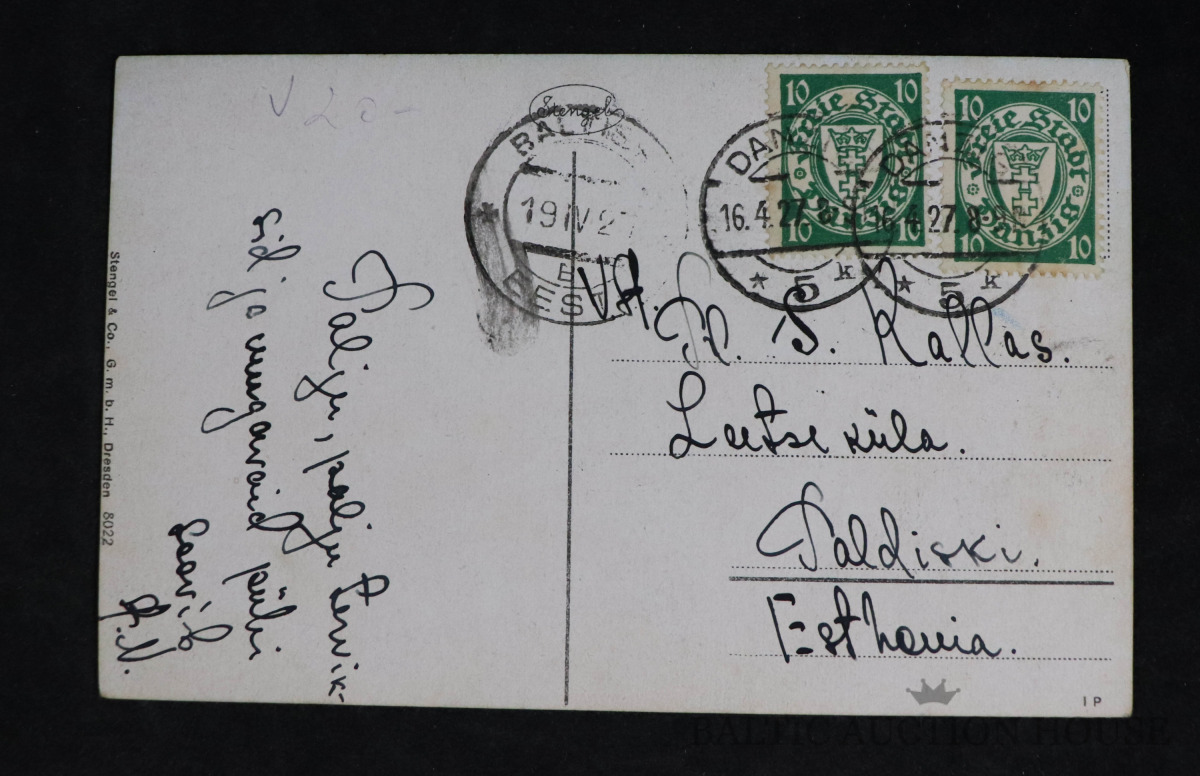 V 20-
Stengel
BALTISKI
19 IV 27
E
EESTI
DANZIG
16.4.27.8
* 5 k
DANZIG
16.4.27.8
* 5 k
10 10
Freie Stadt
Danzig
10 10
10 10
Freie Stadt
Danzig
10 10
Palju, palju tervik-
sid ja mugavaid pühi
soovib
A.N.
Stengel & Co., G. m. b. H., Dresden 8022
VA.
Pr. S. Kallas.
Leetse küla.
Paldiski.
Esthonia.
I P
BALTIC AUCTION HOUSE